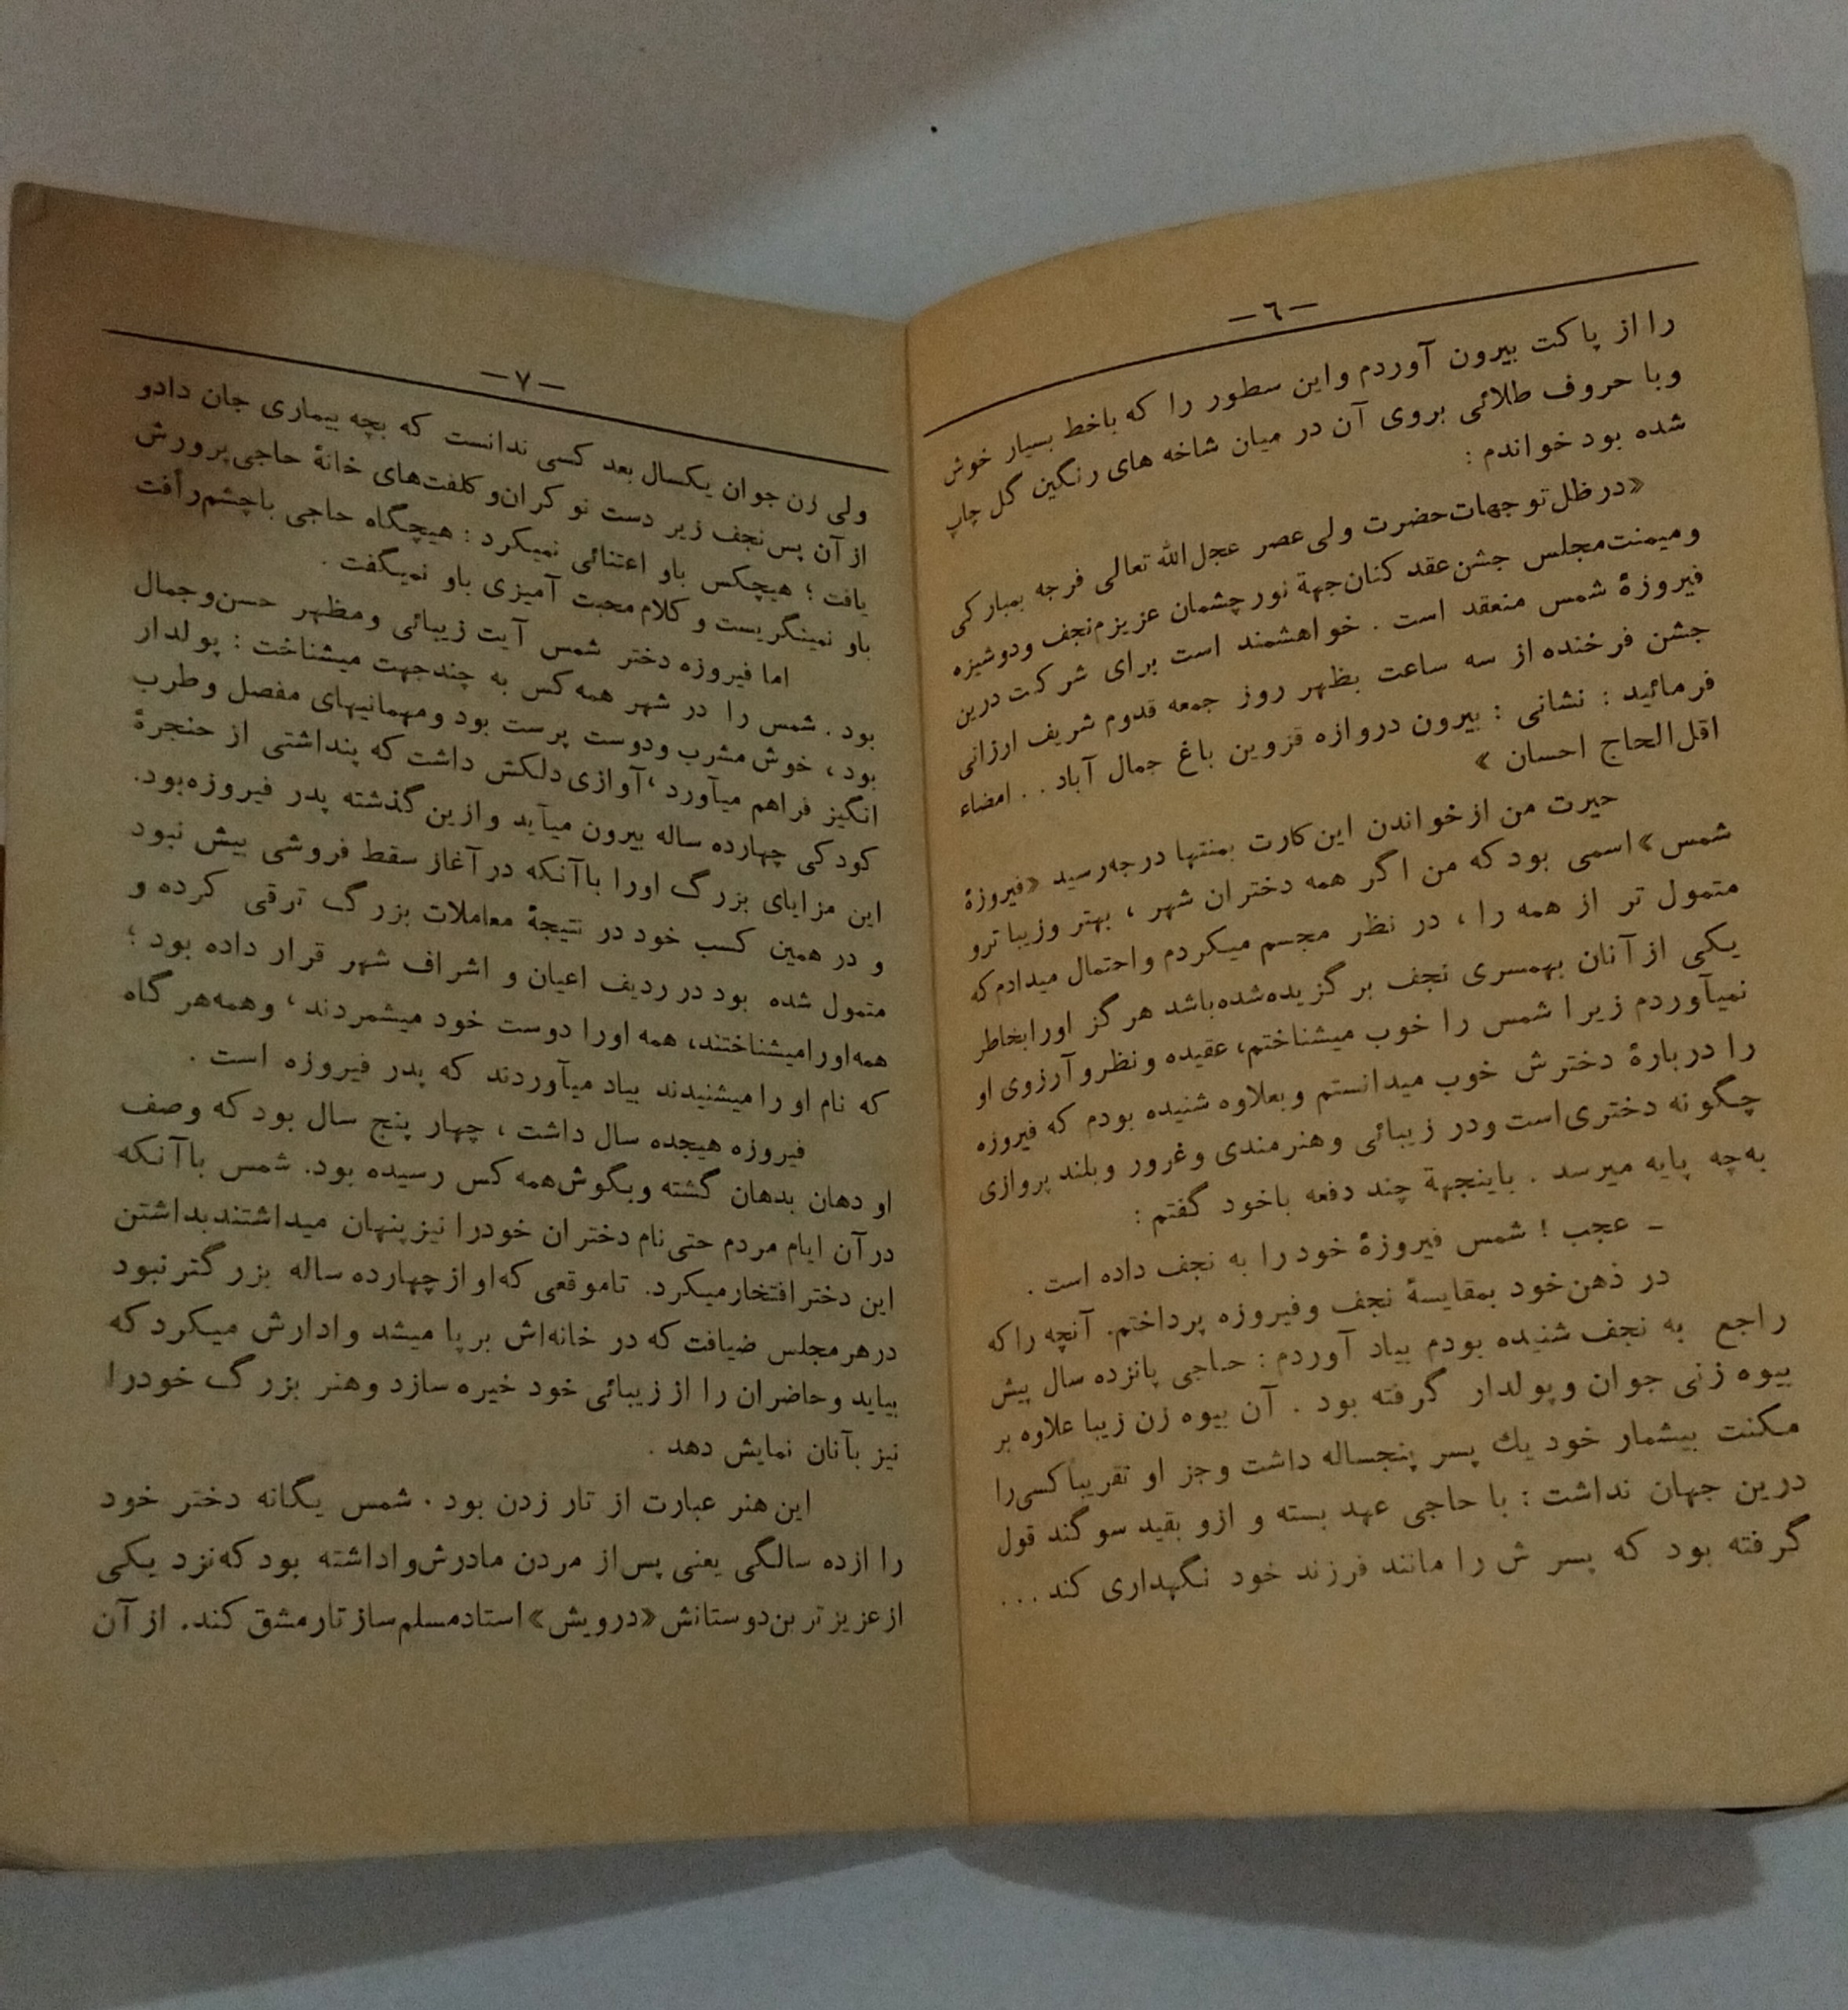 -٦-
را از پاکت بیرون آوردم واین سطور را که باخط بسیار خوش
وبا حروف طلائی بروی آن در میان شاخه های رنگین گل چاپ
شده بود خواندم :
«در ظل توجهات حضرت ولی عصر عجل الله تعالی فرجه بمبارکی
ومیمنت مجلس جشن عقد کنان جهة نور چشمان عزیزم نجف ودوشیزه
فیروزۀ شمس منعقد است . خواهشمند است برای شرکت درین
جشن فرخنده از سه ساعت بظهر روز جمعه قدوم شریف ارزانی
فرمائید : نشانی : بیرون دروازه قزوین باغ جمال آباد . . امضاء
اقل الحاج احسان »
حیرت من از خواندن این کارت بمنتها درجه رسید «فیروزۀ
شمس» اسمی بود که من اگر همه دختران شهر ، بهتر وزیبا ترو
متمول تر از همه را ، در نظر مجسم میکردم واحتمال میدادم که
یکی از آنان بهمسری نجف بر گزیده شده باشد هرگز اورابخاطر
نمیآوردم زیرا شمس را خوب میشناختم، عقیده ونظر وآرزوی او
را دربارۀ دخترش خوب میدانستم وبعلاوه شنیده بودم که فیروزه
چگونه دختری است ودر زیبائی وهنرمندی وغرور وبلند پروازی
به چه پایه میرسد . باینجهة چند دفعه باخود گفتم :
ـ عجب ! شمس فیروزۀ خود را به نجف داده است .
در ذهن خود بمقایسۀ نجف وفیروزه پرداختم. آنچه را که
راجع به نجف شنیده بودم بیاد آوردم : حاجی پانزده سال پیش
بیوه زنی جوان وپولدار گرفته بود . آن بیوه زن زیبا علاوه بر
مکنت بیشمار خود یك پسر پنجساله داشت وجز او تقریباً کسی را
درین جهان نداشت : با حاجی عهد بسته و ازو بقید سوگند قول
گرفته بود که پسرش را مانند فرزند خود نگهداری کند ...
-۷-
ولی زن جوان یکسال بعد کسی ندانست که بچه بیماری جان دادو
از آن پس نجف زیر دست نوکران و کلفت‌های خانۀ حاجی پرورش
یافت ؛ هیچکس باو اعتنائی نمیکرد : هیچگاه حاجی باچشم رأفت
باو نمینگریست و کلام محبت آمیزی باو نمیگفت .
اما فیروزه دختر شمس آیت زیبائی ومظهر حسن وجمال
بود . شمس را در شهر همه کس به چند جهت میشناخت : پولدار
بود ، خوش مشرب ودوست پرست بود ومهمانیهای مفصل وطرب
انگیز فراهم میآورد ، آوازی دلکش داشت که پنداشتی از حنجرۀ
کودکی چهارده ساله بیرون میآید وازین گذشته پدر فیروزه بود.
این مزایای بزرگ اورا باآنکه در آغاز سقط فروشی بیش نبود
و در همین کسب خود در نتیجۀ معاملات بزرگ ترقی کرده و
متمول شده بود در ردیف اعیان و اشراف شهر قرار داده بود ؛
همه اورامیشناختند، همه اورا دوست خود میشمردند ، وهمه هر گاه
که نام او را میشنیدند بیاد میآوردند که پدر فیروزه است .
فیروزه هیجده سال داشت ، چهار پنج سال بود که وصف
او دهان بدهان گشته وبگوش همه کس رسیده بود. شمس باآنکه
در آن ایام مردم حتی نام دختران خودرا نیز پنهان میداشتند بداشتن
این دختر افتخار میکرد. تاموقعی که او از چهارده ساله بزرگتر نبود
در هر مجلس ضیافت که در خانه‌اش برپا میشد وادارش میکرد که
بیاید وحاضران را از زیبائی خود خیره سازد وهنر بزرگ خودرا
نیز بآنان نمایش دهد .
این هنر عبارت از تار زدن بود . شمس یگانه دختر خود
را ازده سالگی یعنی پس از مردن مادرش واداشته بود که نزد یکی
از عزیز ترین دوستانش «درویش» استاد مسلم ساز تار مشق کند. از آن